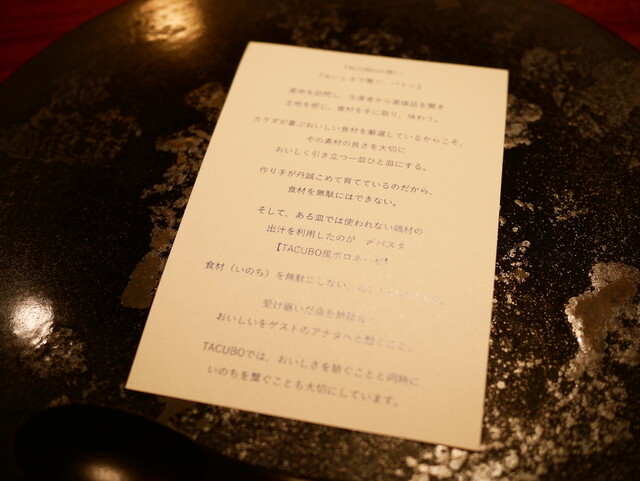 『おいしさで繋ぐ、バトン』
産地を訪問し、生産者から直接話を聞き
土地を感じ、食材を手に取り、味わう。
カラダが喜ぶおいしい食材を厳選しているからこそ、
その素材の良さを大切に
おいしく引き立つ一皿ひと皿にする。
作り手が丹誠こめて育てているのだから、
食材を無駄にはできない。
そして、ある皿では使われない端材の
出汁を利用したのが 〆パスタ
【TACUBO風ボロネーゼ】
食材（いのち）を無駄にしない、
受け継いだ命を
おいしいをゲストのアナタへと繋ぐこと。
TACUBOでは、おいしさを紡ぐことと同時に
いのちを繋ぐことも大切にしています。